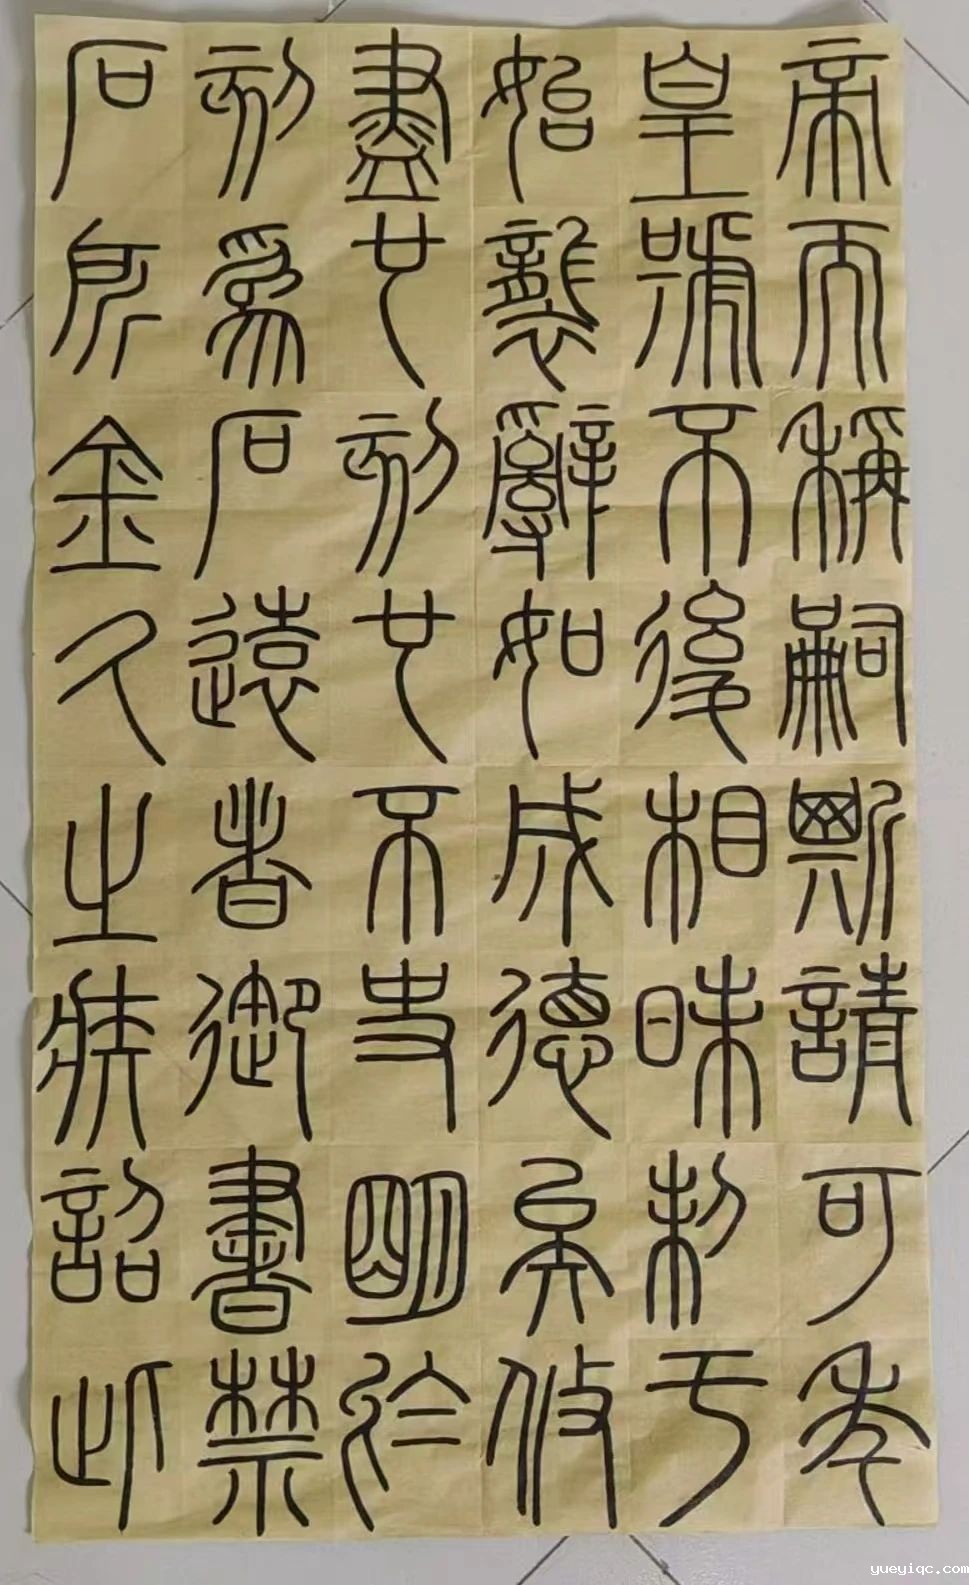 帝而稱嗣斯請可
皇號不後相昧制于
始襲辭如成德矣攸
盡也刻也不史明於
刻為石遠者御書禁
石所金久之疾詔此
yueyiqc.com